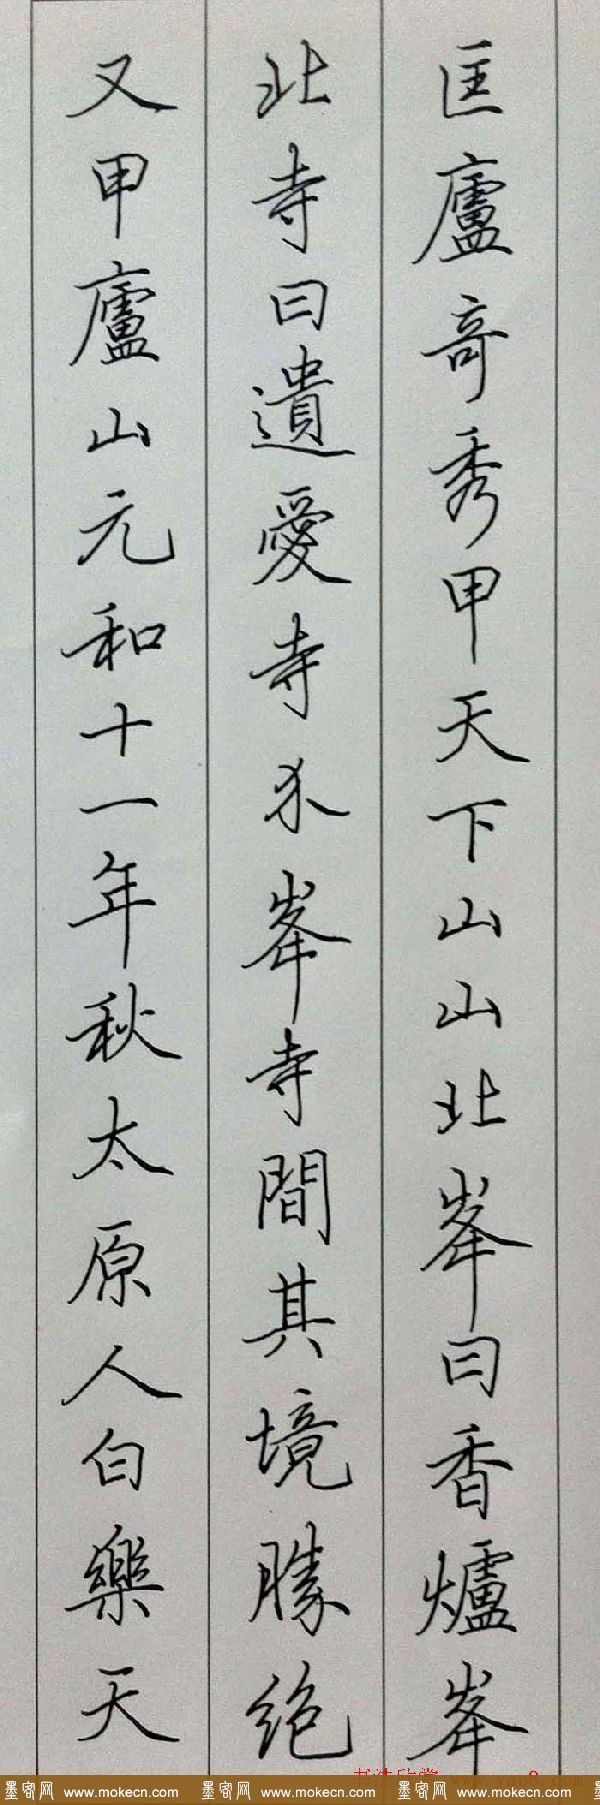 匡廬奇秀甲天下山山北峯曰香爐峯
北寺曰遺愛寺尒峯寺間其境勝絶
又甲廬山元和十一年秋太原人白樂天
书法欣赏 www.yac8.com
墨客网 www.mokecn.com 墨客网 www.mokecn.com 墨客网 www.mokecn.com